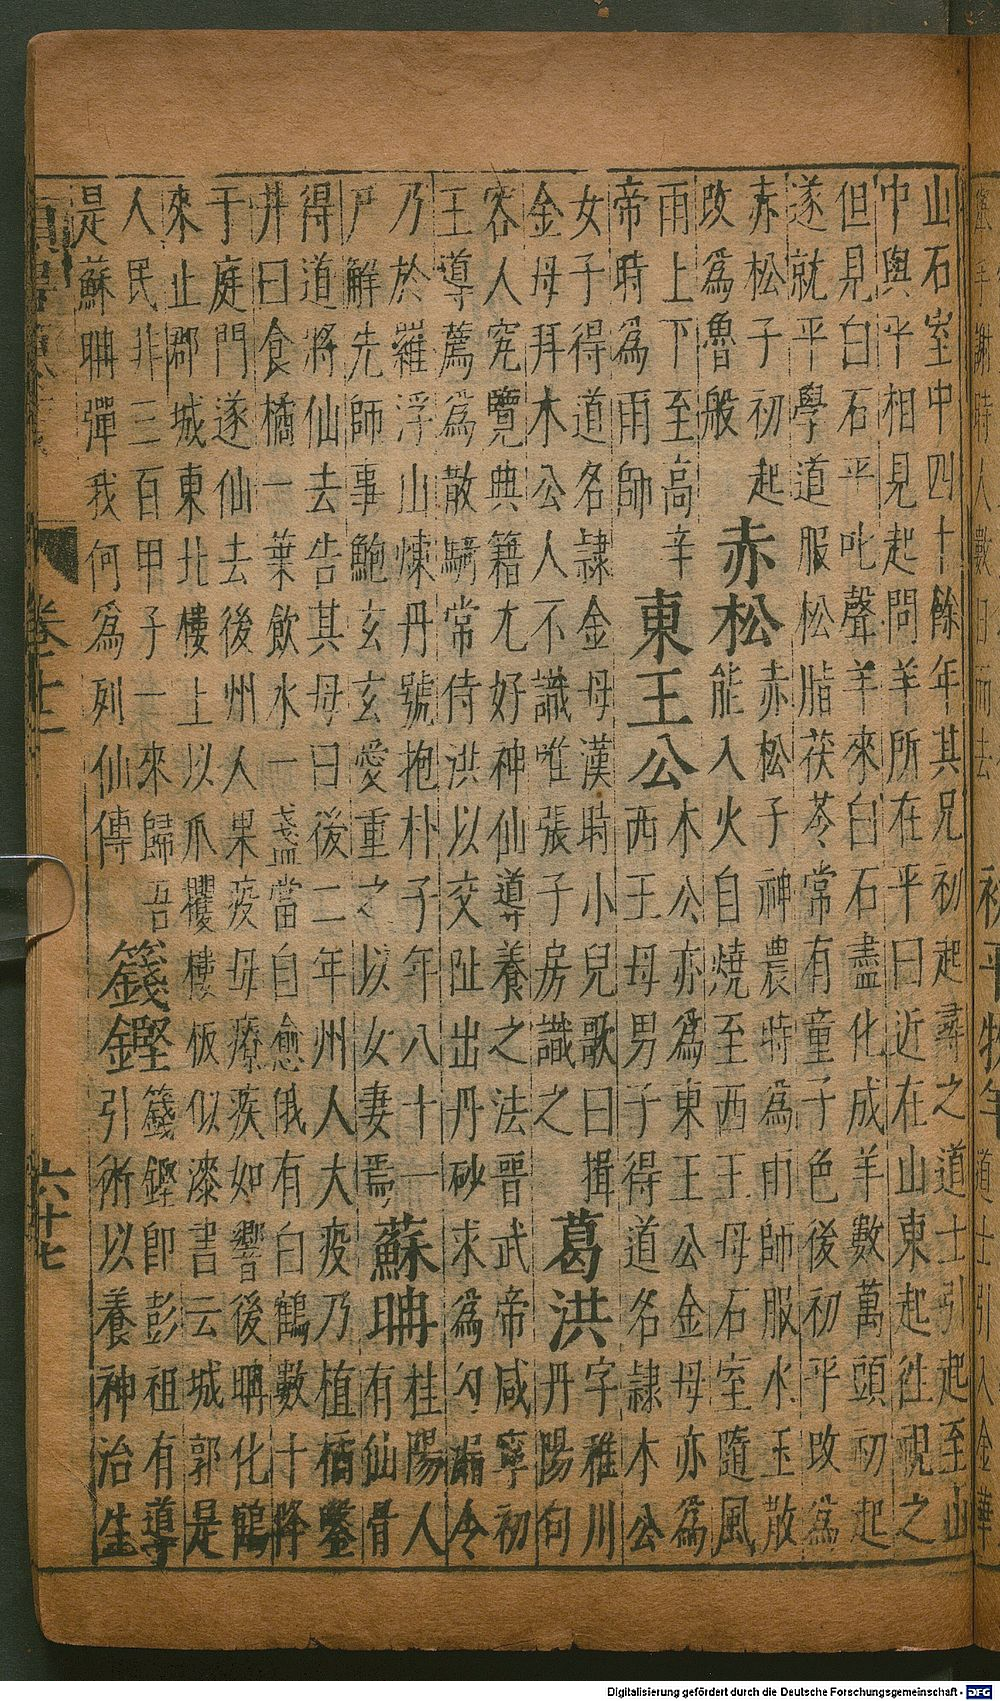 初平牧羊
道士引入金華
山石室中四十餘年其兄初起尋之道士引起至山
中與平相見起問羊所在平曰近在山東起往視之
但見白石平叱聲羊來白石盡化成羊數萬頭初起
遂就平學道服松脂茯苓常有童子色後初平改爲
赤松子初起
改爲魯般
赤松
赤松子神農時爲雨師服水玉散
能入火自燒至西王母石室隨風
雨上下至高辛
帝時爲雨師
東王公
木公亦爲東王公金母亦爲
西王母男子得道名隷木公
女子得道名隷金母漢時小兒歌曰揖
金母拜木公人不識唯張子房識之
葛洪
字稚川
丹陽句
容人究覽典籍尤好神仙導養之法晉武帝咸寧初
王導薦爲散騎常侍洪以交趾出丹砂求爲勾漏令
乃於羅浮山煉丹號抱朴子年八十一
尸解先師事鮑玄玄愛重之以女妻焉
蘇聃
桂陽人
有仙骨
得道將仙去告其母曰後二年州人大疫乃植橘鑿
井曰食橘一葉飲水一盞當自愈俄有白鶴數十降
于庭門遂仙去後州人果疫母療疾如響後聃化鶴
來止郡城東北樓上以爪攫樓板似漆書云城郭是
人民非三百甲子一來歸吾
是蘇聃彈我何爲列仙傳
籛鏗
籛鏗即彭祖有導
引術以養神治生
卷十二
六十七
Digitalisierung gefördert durch die Deutsche Forschungsgemeinschaft - DFG